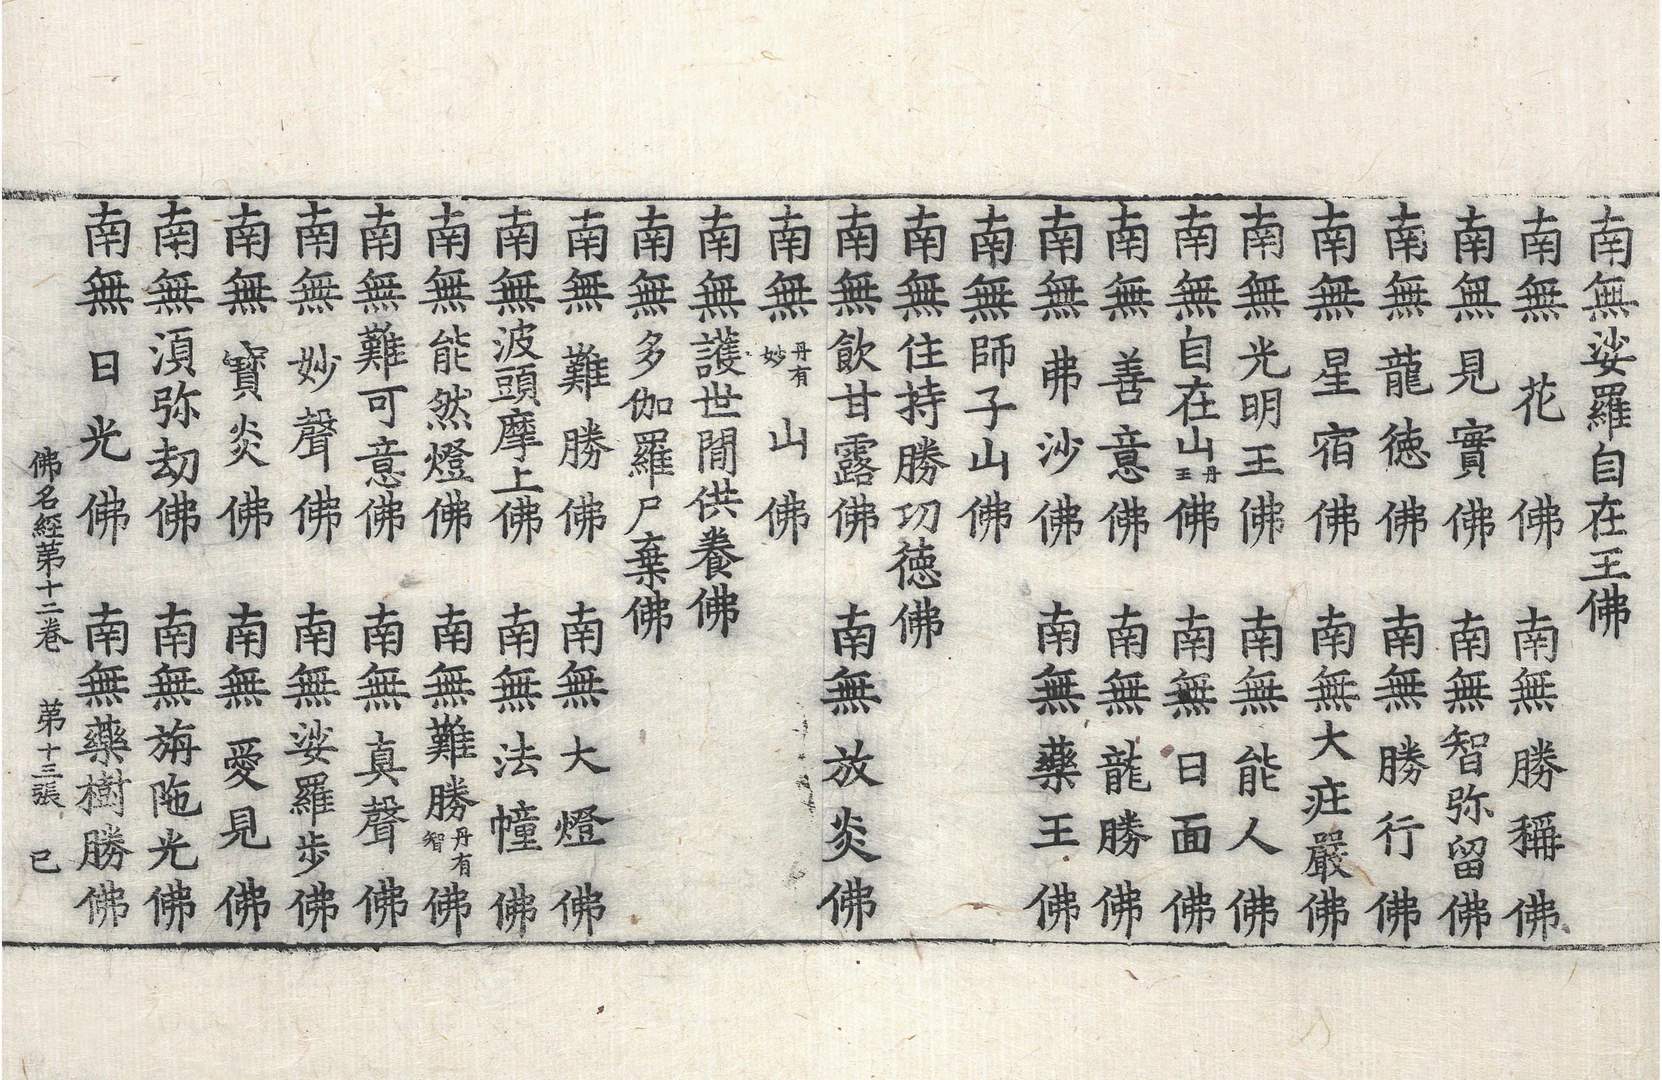 南無娑羅自在王佛
南無花佛　南無勝稱佛
南無見實佛　南無智弥留佛
南無龍徳佛　南無勝行佛
南無星宿佛　南無大疘嚴佛
南無光明王佛　南無能人佛
南無自在山丹王佛　南無日面佛
南無善意佛　南無龍勝佛
南無弗沙佛　南無藥王佛
南無師子山佛
南無住持勝功徳佛
南無飲甘露佛　南無放炎佛
南無丹有妙山佛
南無護世間供養佛
南無多伽羅尸棄佛
南無難勝佛　南無大燈佛
南無波頭摩上佛　南無法幢佛
南無能然燈佛　南無難勝丹有智佛
南無難可意佛　南無真聲佛
南無妙聲佛　南無娑羅步佛
南無寶炎佛　南無愛見佛
南無湏弥劫佛　南無旃陁光佛
南無日光佛　南無藥樹勝佛
佛名經第十二卷　第十三張　已